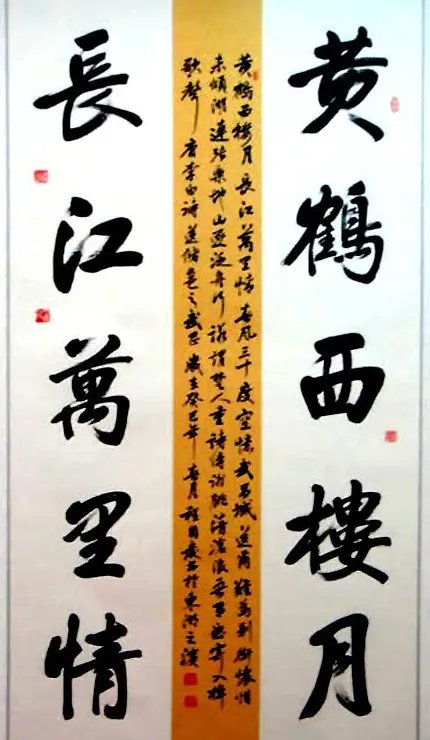 黄鶴西樓月
黄鶴西樓月 長江萬里情 春风三十度 空憶武昌城 送爾難為别 銜惜
未傾 湖連張樂地 山逐泛舟行 諾謂楚人重 詩傳謝朓清 滄浪吾有曲 寄入棹
歌聲 唐李白詩 送儲邕之武昌 歲在癸巳年 春月 書於東湖之濱
長江萬里情